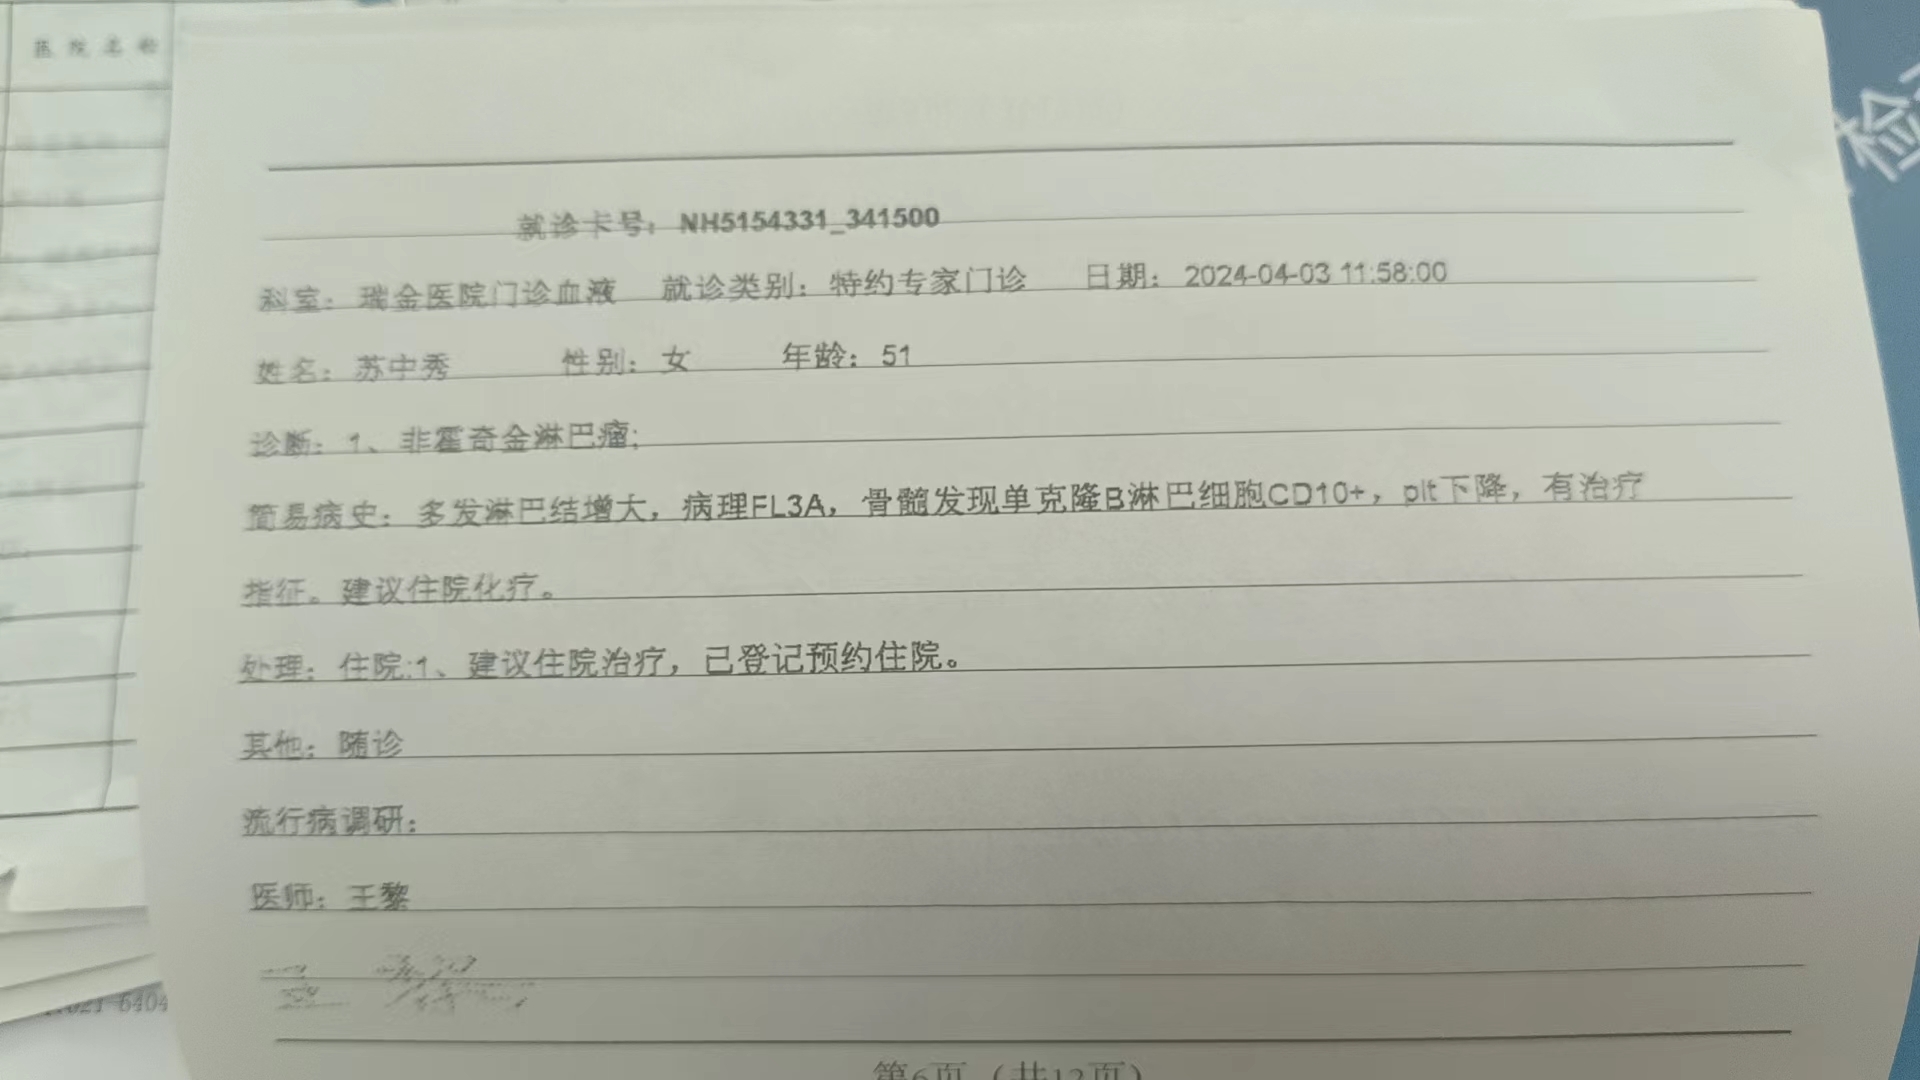 医院名称
检
就诊卡号：NH5154331_341500
科室：瑞金医院门诊血液 就诊类别：特约专家门诊 日期：2024-04-03 11:58:00
姓名：苏中秀 性别：女 年龄：51
诊断：1、非霍奇金淋巴瘤;
简易病史：多发淋巴结增大，病理FL3A，骨髓发现单克隆B淋巴细胞CD10+，plt下降，有治疗
指征。建议住院化疗。
处理：住院:1、建议住院治疗，已登记预约住院。
其他：随诊
流行病调研：
医师：王黎
第6页（共12页）